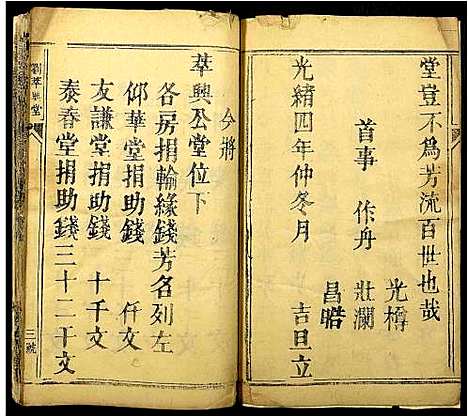 堂豈不爲芳流百世也哉
光樽
首事 作舟 壯瀾
昌晧
光緒四年仲冬月 吉旦立
今將
萃興公堂位下
各房捐輸緣錢芳名列左
仰華堂捐助錢 仟文
友謙堂捐助錢 十千文
泰春堂捐助錢三十二千文
劉萃興堂
三號